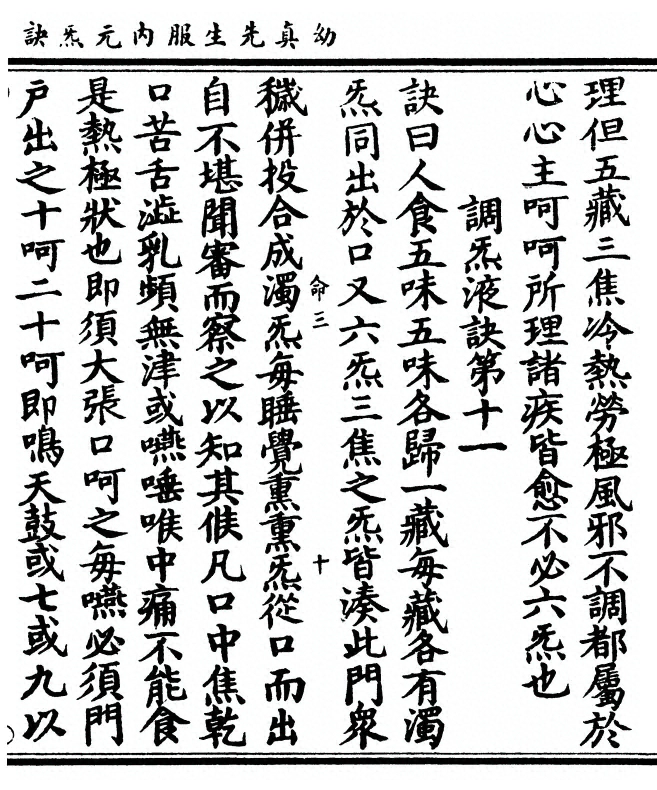 幼真先生服内元炁訣
理但五藏三焦冷熱勞極風邪不調都屬於
心心主呵呵所理諸疾皆愈不必六炁也
調炁液訣第十一
訣曰人食五味五味各歸一藏每藏各有濁
炁同出於口又六炁三焦之炁皆湊此門衆
命三
十
穢併投合成濁炁每睡覺熏熏炁從口而出
自不堪聞審而察之以知其候凡口中焦乾
口苦舌澁乳頻無津或嚥唾喉中痛不能食
是熱極狀也即須大張口呵之每嚥必須門
戶出之十呵二十呵即鳴天鼓或七或九以